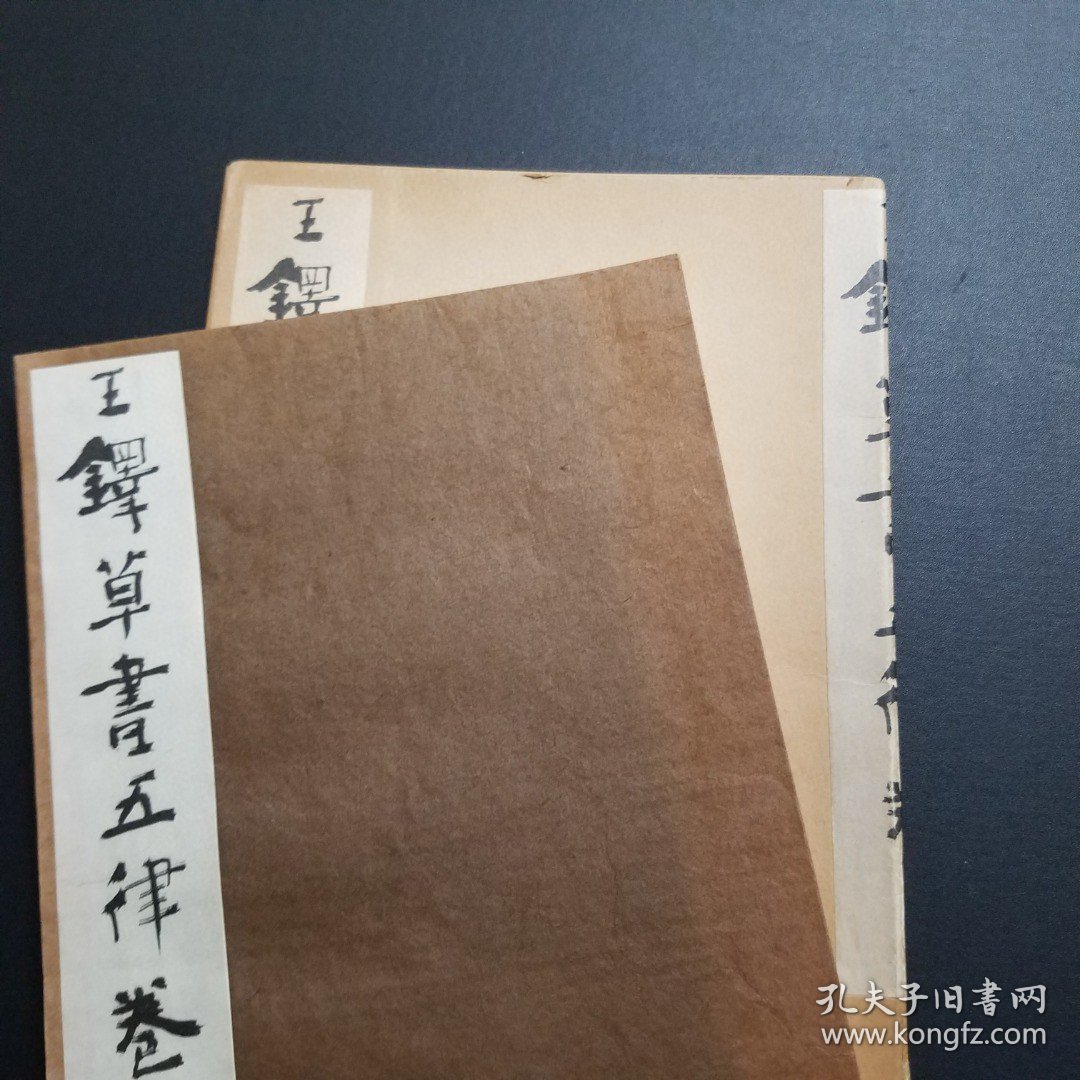 王鐸草書五律卷
王鐸
孔夫子旧書网
www.kongfz.com